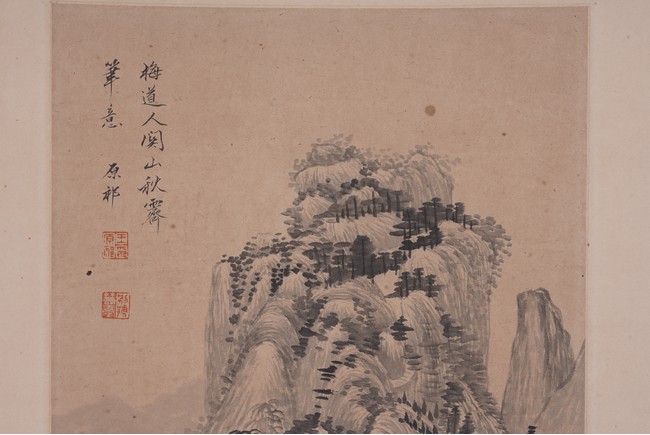 梅道人関山秋霽
筆意 原祁